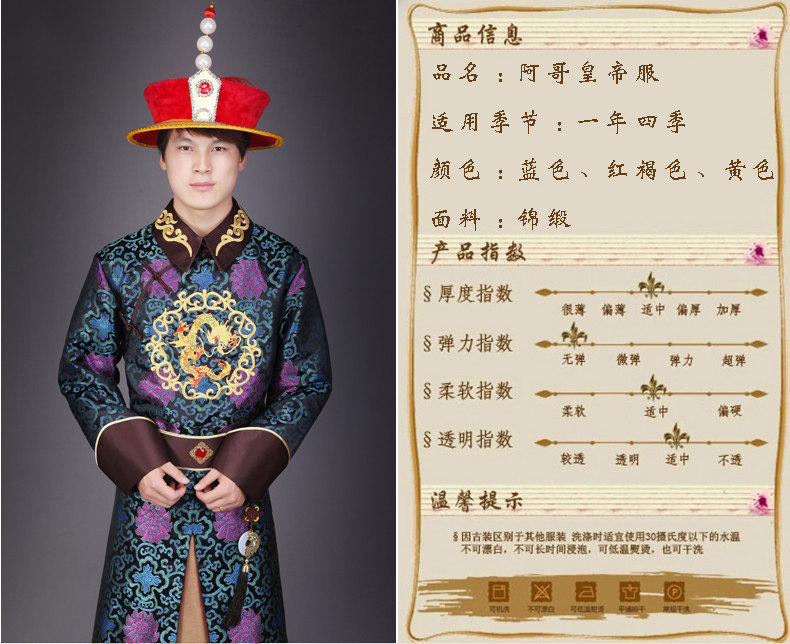 商品信息
品名：阿哥皇帝服
适用季节：一年四季
颜色：蓝色、红褐色、黄色
面料：锦缎
产品指数
§厚度指数
很薄 偏薄 适中 偏厚 加厚
§弹力指数
无弹 微弹 弹力 超弹
§柔软指数
柔软 适中 偏硬
§透明指数
较透 透明 适中 不透
温馨提示
§因古装区别于其他服装 洗涤时适宜使用30摄氏度以下的水温
不可漂白，不可长时间浸泡，可低温熨烫，也可干洗
可机洗 不可漂白 可低温熨烫 平铺晾干 常规干洗